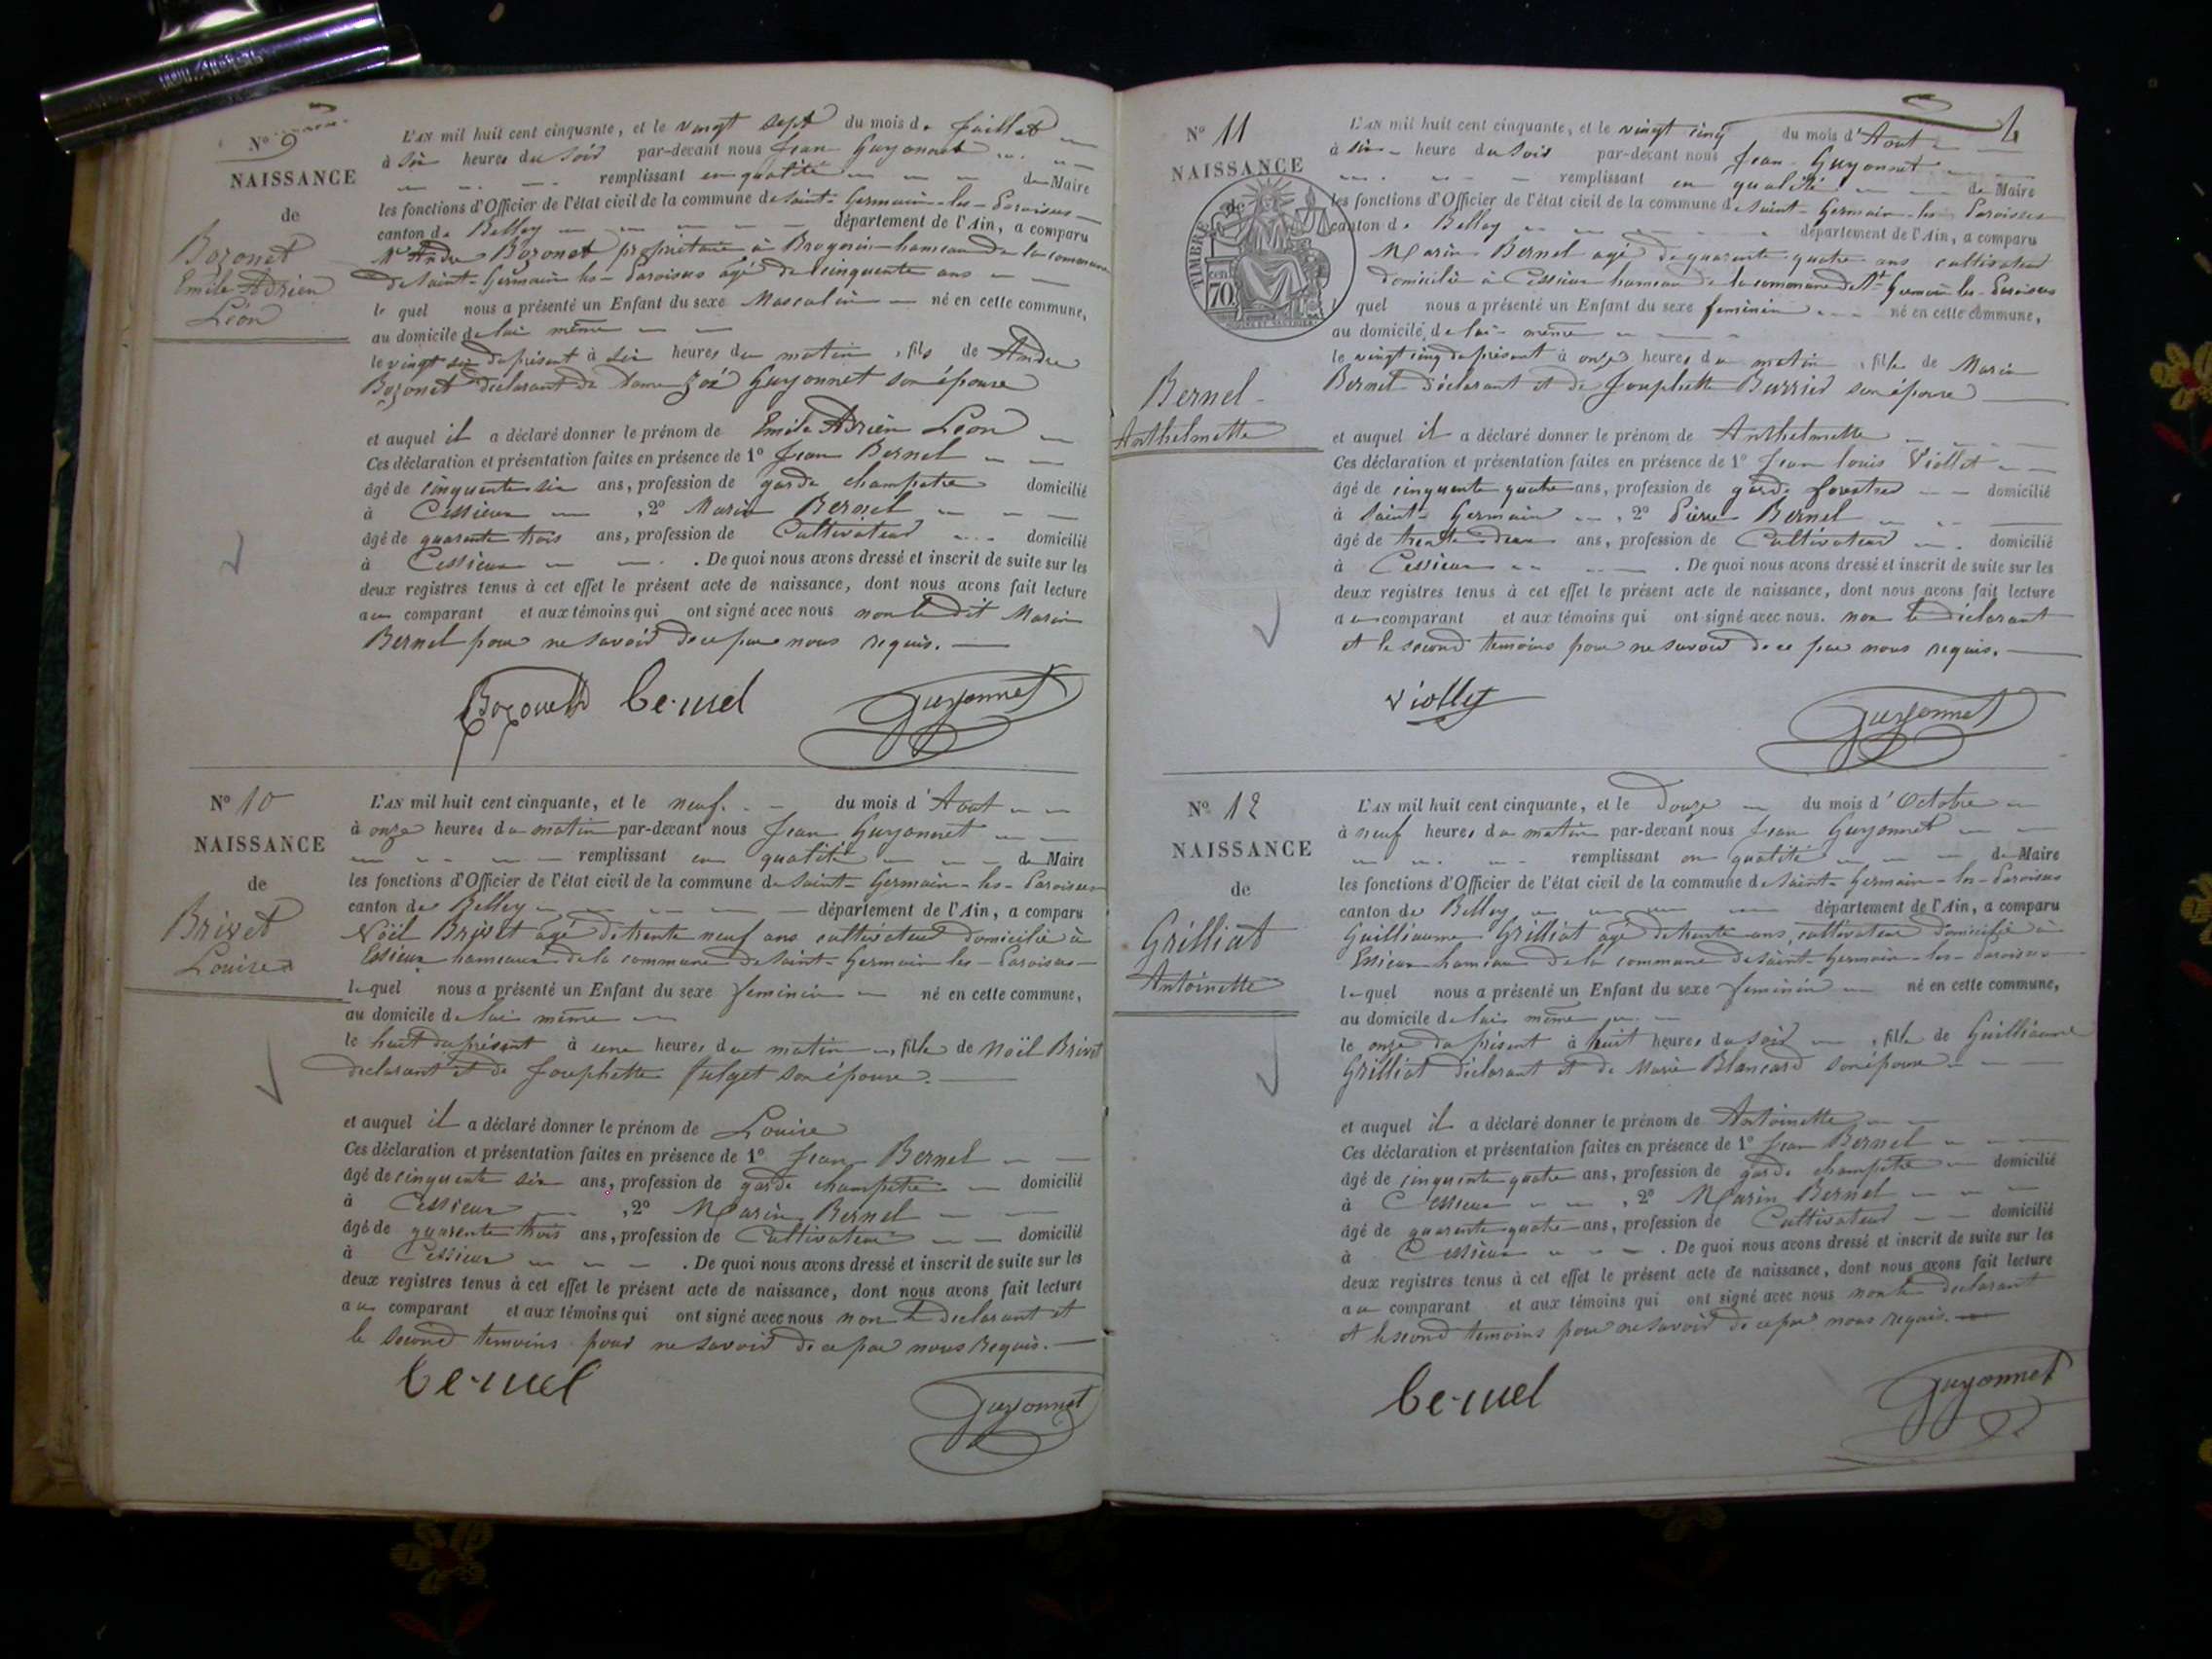 N° 9
NAISSANCE
de
Bozonet
Emile Adrien
Léon
L'AN mil huit cent cinquante, et le vingt sept du mois de Juillet
à six heures du soir par-devant nous Jean Guyonnet
remplissant en qualité de Maire
les fonctions d'Officier de l'état civil de la commune de Saint-Germain-les-Paroisses
canton de Belley département de l'Ain, a comparu
Mr Andre Bozonet propriétaire à Brognin hameau de la commune
de Saint-Germain les-Paroisses agé de cinquente ans
le quel nous a présenté un Enfant du sexe Masculin né en cette commune,
au domicile de lui même
le vingt six du présent à six heures du matin, fils de Andre
Bozonet déclarant de dame Zoé Guyonnet son épouse
et auquel il a déclaré donner le prénom de Emile Adrien Léon
Ces déclaration et présentation faites en présence de 1° Jean Bernel
âgé de cinquente six ans, profession de garde champetre domicilié
à Cessieux, 2° Marin Bernel
âgé de quarente trois ans, profession de Cultivateur domicilié
à Cessieux. De quoi nous avons dressé et inscrit de suite sur les
deux registres tenus à cet effet le présent acte de naissance, dont nous avons fait lecture
au comparant et aux témoins qui ont signé avec nous non le dit Marin
Bernel pour ne savoir de ce par nous requis.
Bozonet bernel Guyonnet
N° 10
NAISSANCE
de
Brivet
Louise
L'AN mil huit cent cinquante, et le neuf du mois d'Aout
à onze heures du matin par-devant nous Jean Guyonnet
remplissant en qualité de Maire
les fonctions d'Officier de l'état civil de la commune de Saint-Germain-les-Paroisses
canton de Belley département de l'Ain, a comparu
Noël Brivet agé de trente neuf ans cultivateur domicilié à
Essieux hameaux de la commune de Saint-Germain les-Paroisses
lequel nous a présenté un Enfant du sexe feminin né en cette commune,
au domicile de lui même
le huit du présent à une heures du matin, fille de Noël Brivet
declarant et de Jouphette son épouse.
et auquel il a déclaré donner le prénom de Louise
Ces déclaration et présentation faites en présence de 1° Jean Bernel
âgé de cinquente six ans, profession de garde champetre domicilié
à Cessieux, 2° Marin Bernel
âgé de quarente trois ans, profession de Cultivateur domicilié
à Cessieux. De quoi nous avons dressé et inscrit de suite sur les
deux registres tenus à cet effet le présent acte de naissance, dont nous avons fait lecture
au comparant et aux témoins qui ont signé avec nous non le declarant et
le second temoins pour ne savoir de ce par nous requis.
bernel Guyonnet
4
N° 11
NAISSANCE
de
TIMBRE
70 cen
Bernel
Anthelmette
L'AN mil huit cent cinquante, et le vingt cinq du mois d'Aout
à six heure du soir par-devant nous Jean Guyonnet
remplissant en qualité de Maire
les fonctions d'Officier de l'état civil de la commune de Saint-Germain-les-Paroisses
canton de Belley département de l'Ain, a comparu
Marin Bernel agé de quarente quatre ans cultivateur
domicilié à Cessieux hameau de la commune de St Germain les-Paroisses
lequel nous a présenté un Enfant du sexe feminin né en cette commune,
au domicile de lui-même
le vingt cinq du présent à onze heures du matin, fille de Marin
Bernel déclarant et de Jouphette Burrier son épouse
et auquel il a déclaré donner le prénom de Anthelmette
Ces déclaration et présentation faites en présence de 1° Jean louis Viollet
âgé de cinquente quatre ans, profession de garde forestier domicilié
à Saint-Germain, 2° Pierre Bernel
âgé de trente deux ans, profession de Cultivateur domicilié
à Cessieux. De quoi nous avons dressé et inscrit de suite sur les
deux registres tenus à cet effet le présent acte de naissance, dont nous avons fait lecture
au comparant et aux témoins qui ont signé avec nous. non le déclarant
et le second temoins pour ne savoir de ce par nous requis.
Viollet Guyonnet
N° 12
NAISSANCE
de
Grilliat
Antoinette
L'AN mil huit cent cinquante, et le Douze du mois d'Octobre
à neuf heures du matin par-devant nous Jean Guyonnet
remplissant en qualité de Maire
les fonctions d'Officier de l'état civil de la commune de Saint-Germain-les-Paroisses
canton de Belley département de l'Ain, a comparu
Guilliaume Grilliat agé de trente ans, cultivateur domicilié à
Essieux hameau de la commune de Saint-Germain-les-Paroisses
lequel nous a présenté un Enfant du sexe feminin né en cette commune,
au domicile de lui même
le onze du présent à huit heures du soir, fille de Guilliaume
Grilliat déclarant et de Marie Blancard son épouse
et auquel il a déclaré donner le prénom de Antoinette
Ces déclaration et présentation faites en présence de 1° Jean Bernel
âgé de cinquente quatre ans, profession de garde champetre domicilié
à Cessieux, 2° Marin Bernel
âgé de quarente quatre ans, profession de Cultivateur domicilié
à Cessieux. De quoi nous avons dressé et inscrit de suite sur les
deux registres tenus à cet effet le présent acte de naissance, dont nous avons fait lecture
au comparant et aux témoins qui ont signé avec nous non le declarant
et le second temoins pour ne savoir de ce par nous requis.
bernel Guyonnet